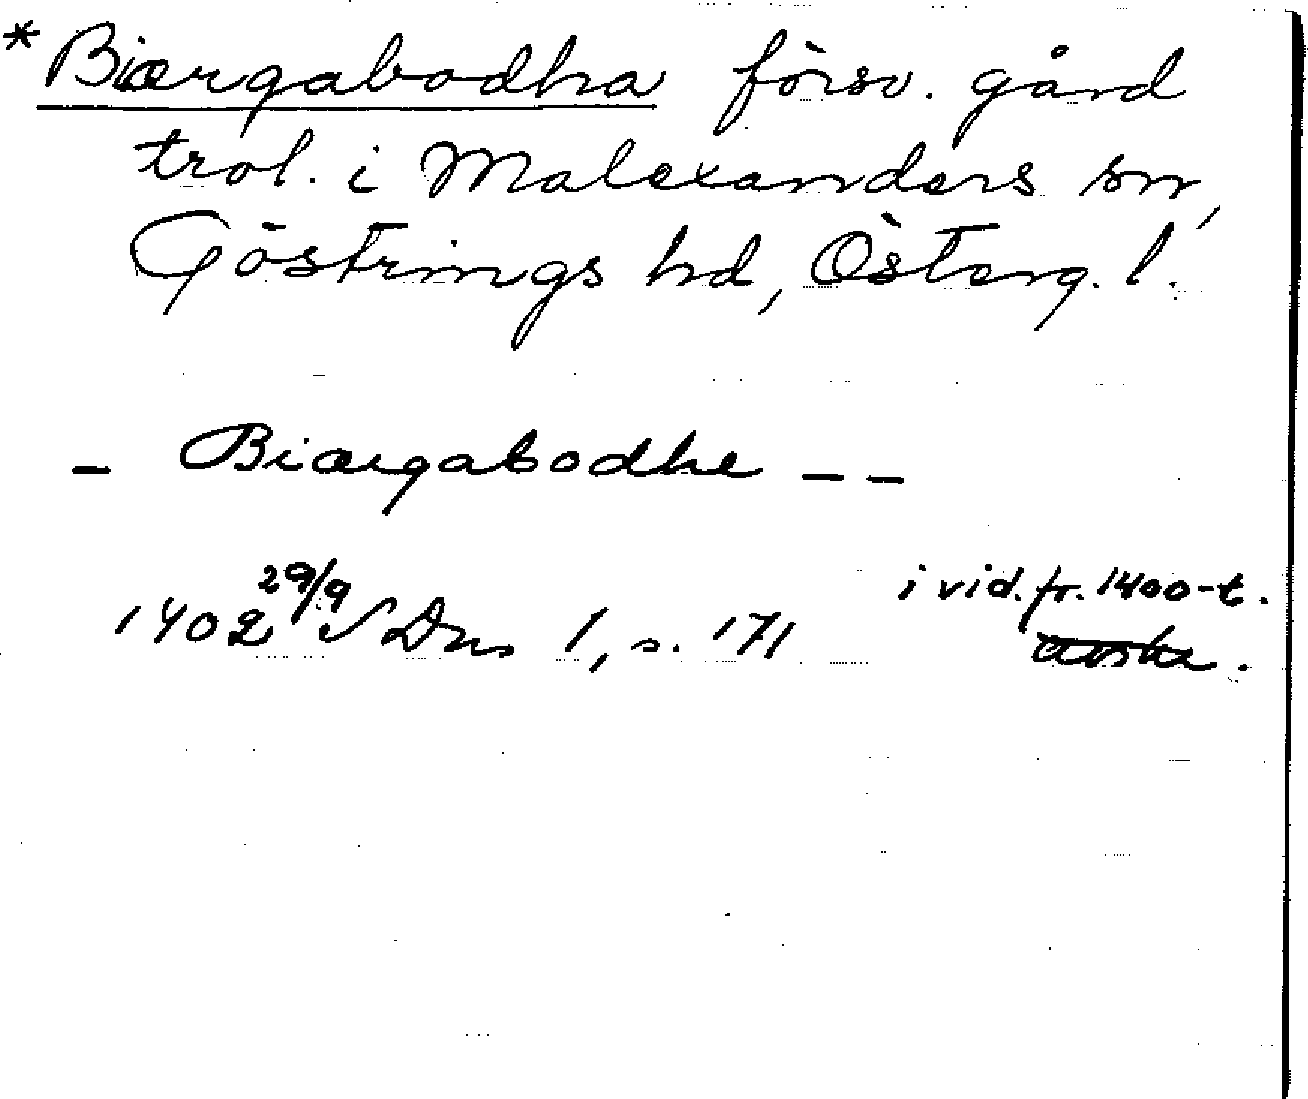 *Biærgabodha försv. gård
trol. i Malexanders sn,
Göstrings hd, Österg. l.
- Biærgabodhe - -
1402 29/9 SDns 1, s. 171 i vid. fr. 1400-t.
avskr.